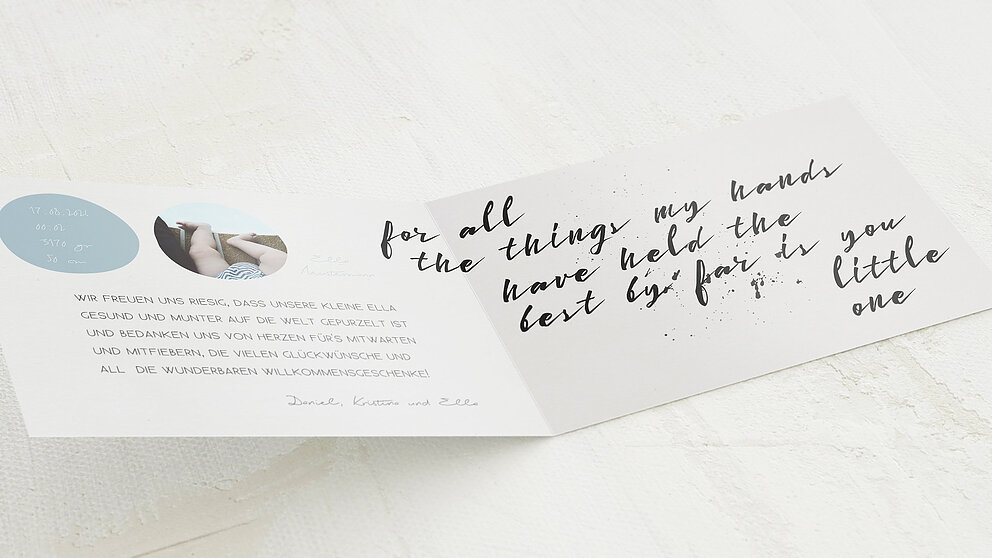 17.08.2021
00:02
3970 gr
50 cm
Ella
WIR FREUEN UNS RIESIG, DASS UNSERE KLEINE ELLA
GESUND UND MUNTER AUF DIE WELT GEPURZELT IST
UND BEDANKEN UNS VON HERZEN FÜR'S MITWARTEN
UND MITFIEBERN, DIE VIELEN GLÜCKWÜNSCHE UND
ALL DIE WUNDERBAREN WILLKOMMENSGESCHENKE!
Daniel, Kristina und Ella
for all
the things my hands
have held the
best by far is you
little
one